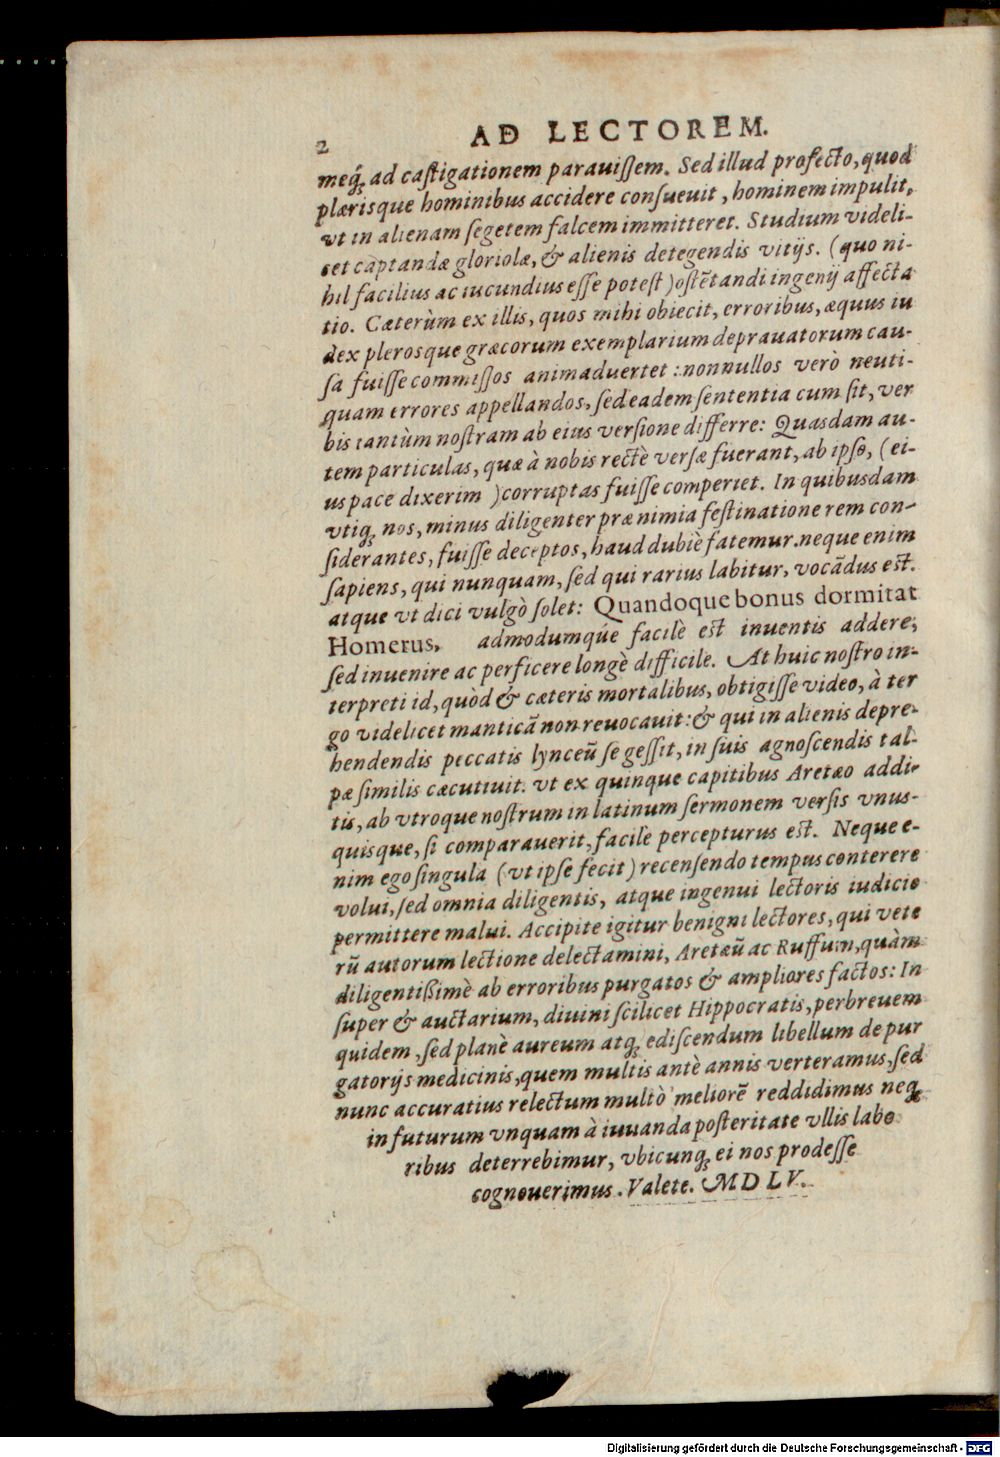 2 AD LECTOREM.
meq́; ad castigationem parauissem. Sed illud profecto, quod
plærisque hominibus accidere consueuit, hominem impulit,
vt in alienam segetem falcem immitteret. Studium videli-
cet captandæ gloriolæ, & alienis detegendis vitijs. (quo ni-
hil facilius ac iucundius esse potest) ostẽtandi ingenij affecta
tio. Cæterùm ex illis, quos mihi obiecit, erroribus, æquus iu
dex plerosque græcorum exemplarium deprauatorum cau-
sa fuisse commissos animaduertet: nonnullos verò neuti-
quam errores appellandos, sed eadem sententia cum sit, ver
bis tantùm nostram ab eius versione differre: Quasdam au-
tem particulas, quæ à nobis rectè versæ fuerant, ab ipso, (ei-
us pace dixerim) corruptas fuisse comperiet. In quibusdam
vtiq; nos, minus diligenter præ nimia festinatione rem con-
siderantes, fuisse deceptos, haud dubiè fatemur. neque enim
sapiens, qui nunquam, sed qui rarius labitur, vocãdus est.
atque vt dici vulgò solet: Quandoque bonus dormitat
Homerus, admodumque facile est inuentis addere;
sed inuenire ac perficere longè difficile. At huic nostro in-
terpreti id, quòd & cæteris mortalibus, obtigisse video, à ter
go videlicet manticã non reuocauit: & qui in alienis depre-
hendendis peccatis lynceũ se gessit, in suis agnoscendis tal-
pæ similis cæcutiuit. vt ex quinque capitibus Aretæo addi-
tis, ab vtroque nostrum in latinum sermonem versis vnus-
quisque, si comparauerit, facile percepturus est. Neque e-
nim ego singula (vt ipse fecit) recensendo tempus conterere
volui, sed omnia diligentis, atque ingenui lectoris iudicio
permittere malui. Accipite igitur benigni lectores, qui vete
rũ autorum lectione delectamini, Aretæũ ac Ruffum, quàm
diligentißimè ab erroribus purgatos & ampliores factos: In
super & auctarium, diuini scilicet Hippocratis, perbreuem
quidem, sed planè aureum atq; ediscendum libellum de pur
gatorijs medicinis, quem multis antè annis verteramus, sed
nunc accuratius relectum multò meliorẽ reddidimus neq;
in futurum vnquam à iuuanda posteritate vllis labo
ribus deterrebimur, vbicunq; ei nos prodesse
cognouerimus. Valete. MDLV.
Digitalisierung gefördert durch die Deutsche Forschungsgemeinschaft - DFG